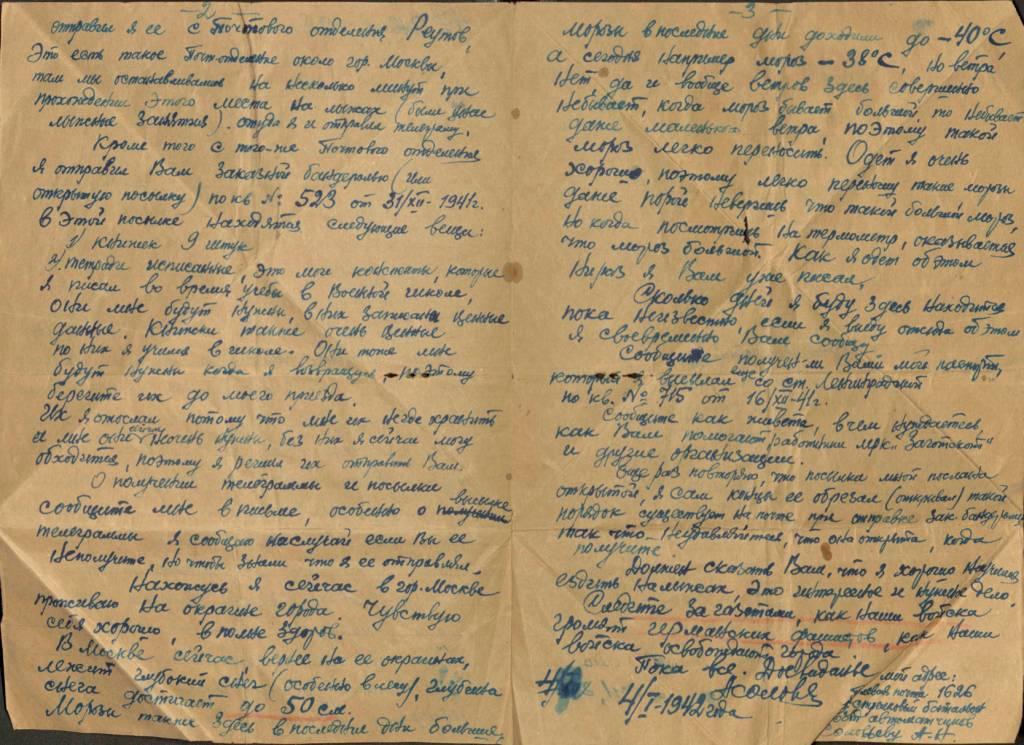 -2-
отправил я ее с Почтового отделения Реутов,
Это есть такое Поч-отделение около гор. Москвы,
там мы останавливались на несколько минут при
прохождении этого места на лыжах (были у нас
лыжные занятия). оттуда я и отправил телеграму.
Кроме того с того-же Почтового отделения
я отправил Вам заказной бандеролью (или
открытую посылку) по кв № 523 от 31/XII-1941г.
в этой посылке находятся следующие вещи:
1) книжек 9 штук
2) тетради исписанные, это мои конспекты, которые
я писал во время учебы в военной школе,
Они мне будут нужны, в них записаны ценные
данные. Книжки также очень ценные
по них я учился в школе. Они тоже мне
будут нужны когда я возвращусь, поэтому
берегите их до моего приезда.
Их я отослал потому что мне их негде хранить
и мне они сейчас неочень нужны, без них я сейчас могу
обходится, поэтому я решил их отправить Вам.
О получении телеграммы и посылки
сообщите мне в письме, особенно о высылке
телеграммы я сообщаю наслучай если Вы ее
неполучите, но чтобы знали что я ее отправлял.
Нахожусь я сейчас в гор. Москве
проживаю на окраине города Чувствую
себя хорошо, вполне здоров.
В Москве сейчас, вернее на ее окраинах,
лежит глубокий снег (особенно в лесу), глубина
снега достигает до 50 см.
Морозы также здесь в последние дни большие,
-3-
морозы в последние дни доходили до -40°С
а сегодня например мороз - 38°С, но ветра
нет, да и вообще ветров здесь совершенно
небывает, когда мороз бывает большой, то небывает
даже маленького ветра, поэтому такой
мороз легко переносить. Одет я очень
хорошо, поэтому легко переношу такие морозы
даже порой неверишь что такой большой мороз,
но когда посмотришь на термометр, оказывается
что мороз большой. Как я одет об этом
я Вам уже писал.
Сколько дней я буду здесь находится
пока неизвестно, если я выеду отсюда об этом
я своевременно Вам сообщу.
Сообщите получен-ли Вами мой
который я высылал еще со ст. Ленинградит
по кв. № 715 от 16/XII-41г.
Сообщите как живете, в чем нуждаетесь,
как Вам помогают работники "Заготскот"
и другие организации.
Еще раз повторяю, что посылка мной послана
открытой, я сам концы ее обрезал (открывал) такой
порядок существует на почте при отправке зак. бандеролью
так что неудивляйтесь, что она открыта, когда
получите.
Должен сказать Вам, что я хорошо научился
ездить на лыжах, это интересное и нужное дело.
Следите за газетами, как наши войска
громят германских фашистов, как наши
войска освобождают города.
Пока все. Досвидание
4/I-1942 года
мой адрес:
почта 1626
стрелковый батальон
автоматчиков
Соловьеву А.Н.